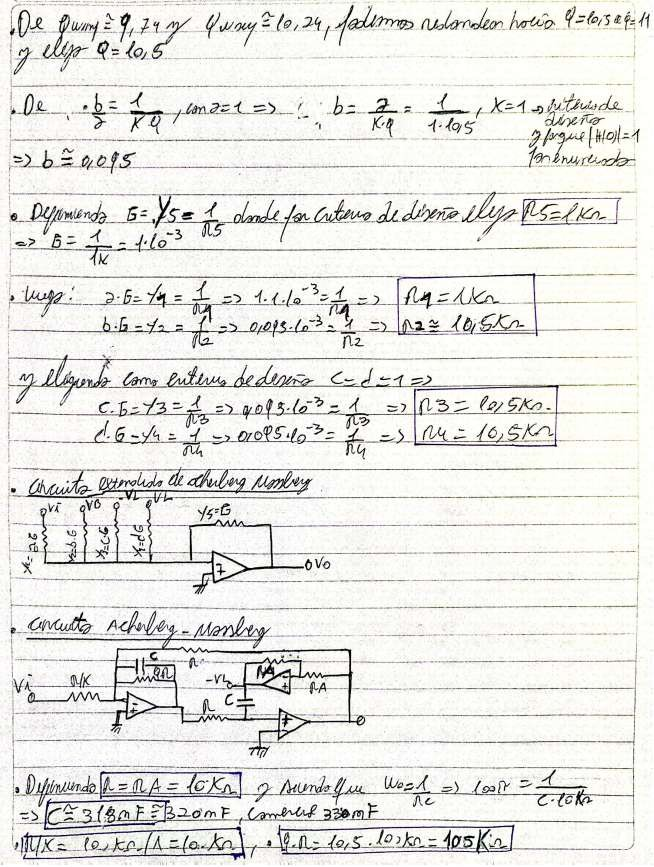 .De Qmin ≅ 9,74 y Qmax ≅ 10,24, podemos redondear hacia Q=10,5 o Q=11
y elijo Q = 10,5
. De . b/a = 1/(K·Q) , con a=1 => ∴ b = a/(K·Q) = 1/(1·10,5) , K=1 → criterio de
diseño
y porque |H(0)|=1
por enunciado
=> b ≅ 0,095
• Definiendo G = Y5 = 1/R5 donde por criterio de diseño elijo R5=1KΩ
=> G = 1/1K = 1·10⁻³
• Luego: a·G = Y1 = 1/R1 => 1·1·10⁻³ = 1/R1 => R1 = 1KΩ
b·G = Y2 = 1/R2 => 0,095·10⁻³ = 1/R2 => R2 ≅ 10,5KΩ
y eligiendo como criterio de diseño c = d = 1 =>
c·G = Y3 = 1/R3 => 0,095·10⁻³ = 1/R3 => R3 = 10,5KΩ.
d·G = Y4 = 1/R4 => 0,095·10⁻³ = 1/R4 => R4 = 10,5KΩ
. Circuito extendido de Acherberg Mossberg
Vi VB -VL VL
Y5=G
Y1=aG Y2=bG Y3=cG Y4=dG
VO
. Circuito Acherberg - Mossberg
R
C
QR
Vi R/K -VL RA RA
R C
. Definiendo R = RA = 10KΩ y siendo que ω0 = 1/RC => 100π = 1/(C·10KΩ)
=> C ≅ 318nF ≅ 320nF, comercial 330nF
. R/K = 10KΩ/1 = 10KΩ , . Q·R = 10,5·10KΩ = 105KΩ